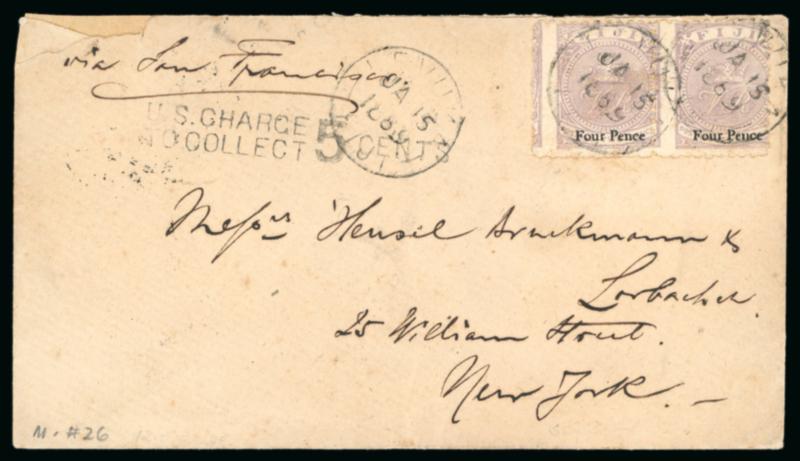 via San Francisco
FIJI
FIJI
JA 15
JA 15
JA 15
Four Pence
Four Pence
U.S. CHARGE
TO COLLECT 5 CENTS
Messrs Hensel Bruckmann &
Lorbacher
25 William Street.
New York. –
M. #26